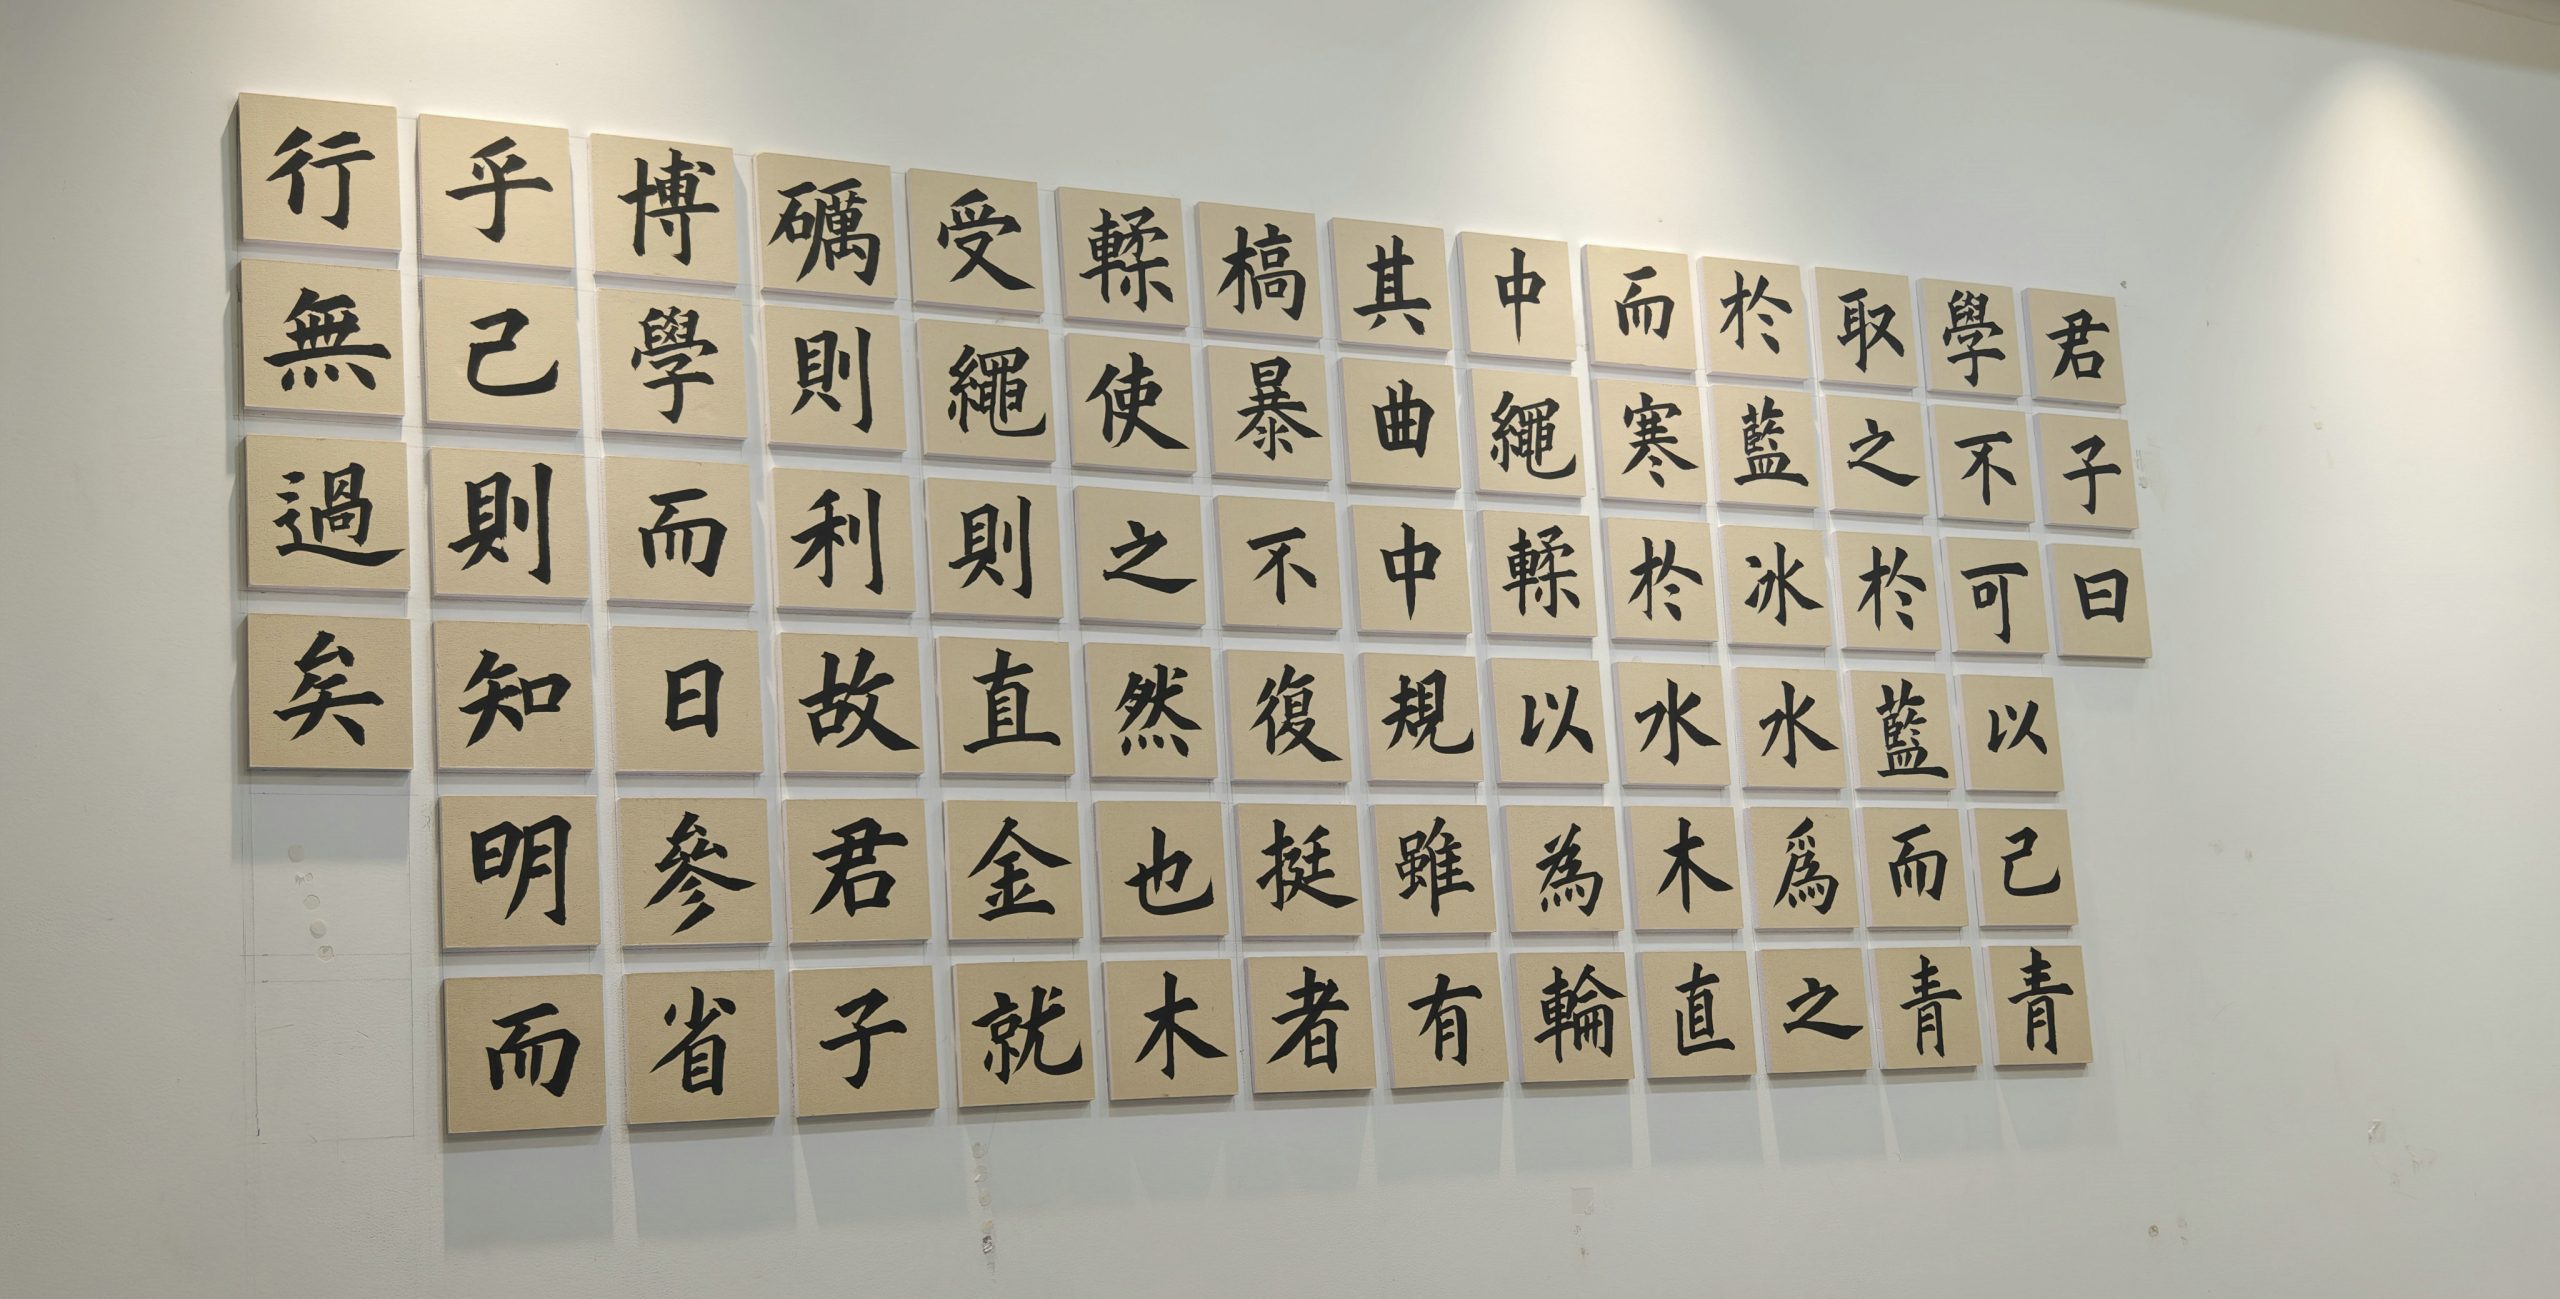 君子曰
學不可以己青
取之於藍而青
於藍冰水爲之
而寒於水木直
中繩輮以為輪
其曲中規雖有
槁暴不復挺者
輮使之然也木
受繩則直金就
礪則利故君子
博學而日參省
乎己則知明而
行無過矣